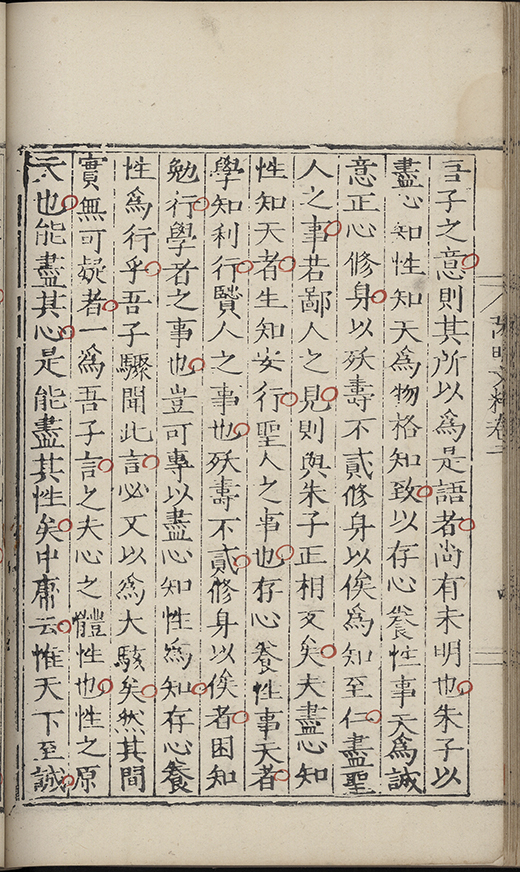 陽明文粹卷二
吾子之意則其所以為是語者尚有未明也朱子以
盡心知性知天為物格知致以存心養性事天為誠
意正心修身以殀壽不貳修身以俟為知至仁盡聖
人之事若鄙人之見則與朱子正相反矣夫盡心知
性知天者生知安行聖人之事也存心養性事天者
學知利行賢人之事也殀壽不貳修身以俟者困知
勉行學者之事也豈可專以盡心知性為知存心養
性為行乎吾子驟聞此言必又以為大駭矣然其間
實無可疑者一為吾子言之夫心之體性也性之原
天也能盡其心是能盡其性矣中庸云惟天下至誠